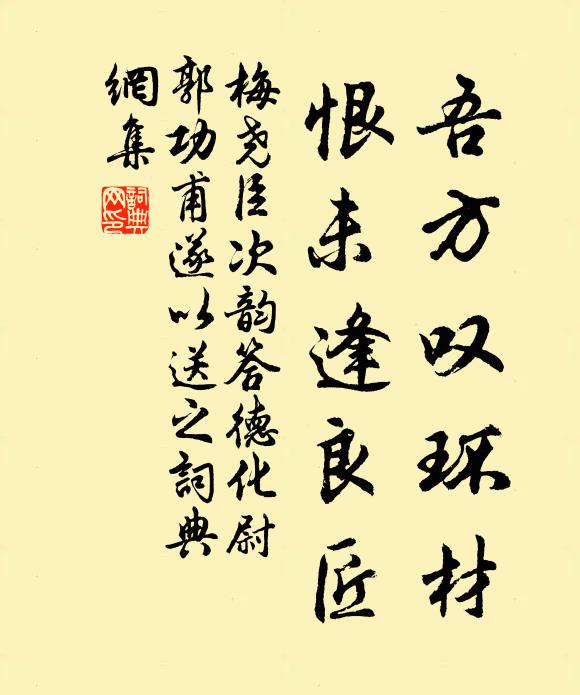 吾方叹环材
恨未逢良匠
梅尧臣次韵答德化尉
郭功甫遂以送之詞典
網集
詞典网印